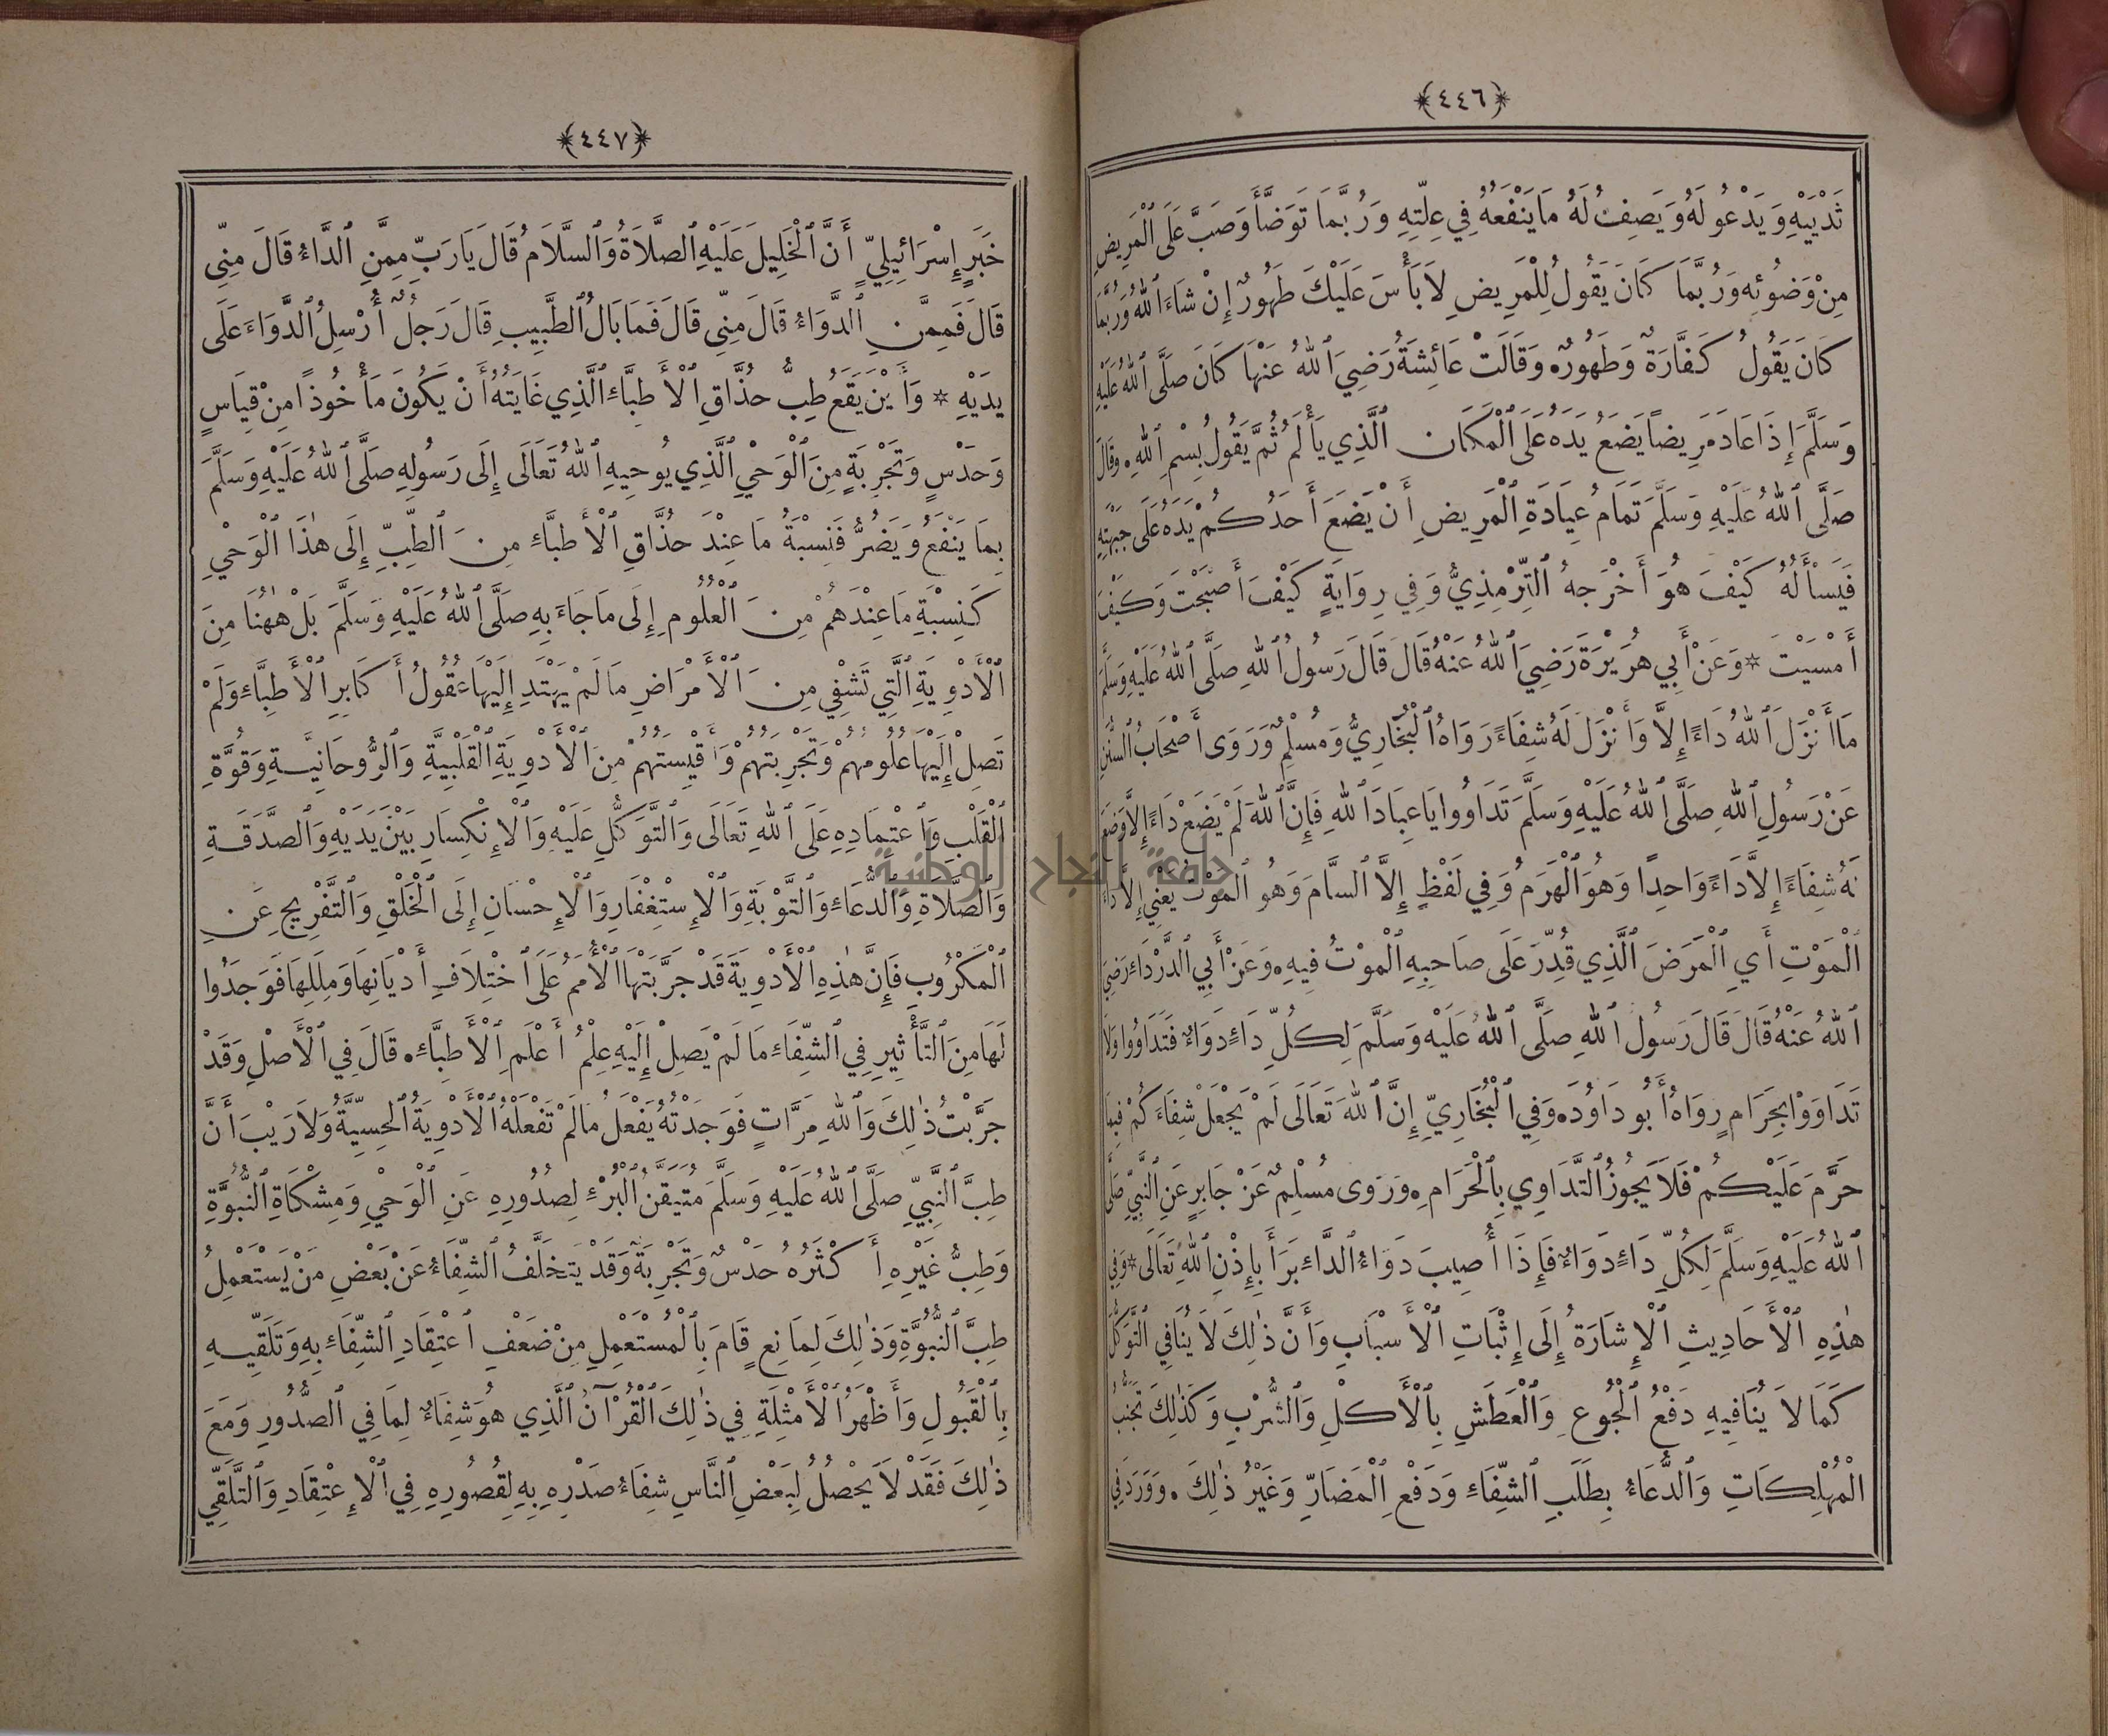 ﴿٤٤٦﴾
ثَدْيَيْهِ وَيَدْعُو لَهُ وَيَصِفُ لَهُ مَا يَنْفَعُهُ فِي عِلَّتِهِ وَرُبَّمَا تَوَضَّأَ وَصَبَّ عَلَى ٱلْمَرِيضِ
مِنْ وَضُوئِهِ وَرُبَّمَا كَانَ يَقُولُ لِلْمَرِيضِ لَا بَأْسَ عَلَيْكَ طَهُورٌ إِنْ شَاءَ ٱللهُ وَرُبَّمَا
كَانَ يَقُولُ كَفَّارَةٌ وَطَهُورٌ. وَقَالَتْ عَائِشَةُ رَضِيَ ٱللهُ عَنْهَا كَانَ صَلَّى ٱللهُ عَلَيْهِ
وَسَلَّمَ إِذَا عَادَ مَرِيضاً يَضَعُ يَدَهُ عَلَى ٱلْمَكَانِ ٱلَّذِي يَأْلَمُ ثُمَّ يَقُولُ بِسْمِ ٱللهِ. وَقَالَ
صَلَّى ٱللهُ عَلَيْهِ وَسَلَّمَ تَمَامُ عِيَادَةِ ٱلْمَرِيضِ أَنْ يَضَعَ أَحَدُكُمْ يَدَهُ عَلَى جَبْهَتِهِ
فَيَسْأَلُهُ كَيْفَ هُوَ أَخْرَجَهُ ٱلتِّرْمِذِيُّ وَفِي رِوَايَةٍ كَيْفَ أَصْبَحْتَ وَكَيْفَ
أَمْسَيْتَ * وَعَنْ أَبِي هُرَيْرَةَ رَضِيَ ٱللهُ عَنْهُ قَالَ قَالَ رَسُولُ ٱللهِ صَلَّى ٱللهُ عَلَيْهِ وَسَلَّمَ
مَا أَنْزَلَ ٱللهُ دَاءً إِلَّا وَأَنْزَلَ لَهُ شِفَاءً رَوَاهُ ٱلْبُخَارِيُّ وَمُسْلِمٌ وَرَوَى أَصْحَابُ ٱلسُّنَنِ
عَنْ رَسُولِ ٱللهِ صَلَّى ٱللهُ عَلَيْهِ وَسَلَّمَ تَدَاوُوا يَا عِبَادَ ٱللهِ فَإِنَّ ٱللهَ لَمْ يَضَعْ دَاءً إِلَّا وَضَعَ
لَهُ شِفَاءً إِلَّا دَاءً وَاحِداً وَهُوَ ٱلْهَرَمُ وَفِي لَفْظٍ إِلَّا ٱلسَّامَ وَهُوَ ٱلْمَوْتُ يَعْنِي إِلَّا دَاءَ
ٱلْمَوْتِ أَيِ ٱلْمَرَضَ ٱلَّذِي قُدِّرَ عَلَى صَاحِبِهِ ٱلْمَوْتُ فِيهِ. وَعَنْ أَبِي ٱلدَّرْدَاءِ رَضِيَ
ٱللهُ عَنْهُ قَالَ قَالَ رَسُولُ ٱللهِ صَلَّى ٱللهُ عَلَيْهِ وَسَلَّمَ لِكُلِّ دَاءٍ دَوَاءٌ فَتَدَاوُوا وَلَا
تَدَاوَوْا بِحِرَامٍ رِوَاهُ أَبُو دَاوُدَ. وَفِي ٱلْبُخَارِيِّ إِنَّ ٱللهَ تَعَالَى لَمْ يَجْعَلْ شِفَاءَكُمْ فِيمَا
حَرَّمَ عَلَيْكُمْ فَلَا يَجُوزُ ٱلتَّدَاوِي بِٱلْحَرَامِ. وَرَوَى مُسْلِمٌ عَنْ جَابِرٍ عَنِ ٱلنَّبِيِّ صَلَّى
ٱللهُ عَلَيْهِ وَسَلَّمَ لِكُلِّ دَاءٍ دَوَاءٌ فَإِذَا أُصِيبَ دَوَاءُ ٱلدَّاءِ بَرَأَ بِإِذْنِ ٱللهِ تَعَالَى * وَفِي
هٰذِهِ ٱلْأَحَادِيثِ ٱلْإِشَارَةُ إِلَى إِثْبَاتِ ٱلْأَسْبَابِ وَأَنَّ ذٰلِكَ لَا يُنَافِي ٱلتَّوَكُّلَ
كَمَا لَا يُنَافِيهِ دَفْعُ ٱلْجُوعِ وَٱلْعَطَشِ بِٱلْأَكْلِ وَٱلشُّرْبِ وَكَذٰلِكَ تَجَنُّبُ
ٱلْمُهْلِكَاتِ وَٱلدُّعَاءُ بِطَلَبِ ٱلشِّفَاءِ وَدَفْعِ ٱلْمَضَارِّ وَغَيْرُ ذٰلِكَ. وَوَرَدَ فِي
﴿٤٤٧﴾
خَبَرٍ إِسْرَائِيلِيٍّ أَنَّ ٱلْخَلِيلَ عَلَيْهِ ٱلصَّلَاةُ وَٱلسَّلَامُ قَالَ يَا رَبِّ مِمَّنِ ٱلدَّاءُ قَالَ مِنِّي
قَالَ فَمِمَّنِ ٱلدَّوَاءُ قَالَ مِنِّي قَالَ فَمَا بَالُ ٱلطَّبِيبِ قَالَ رَجُلٌ أُرْسِلُ ٱلدَّوَاءَ عَلَى
يَدَيْهِ * وَأَيْنَ يَقَعُ طِبُّ حُذَّاقِ ٱلْأَطِبَّاءِ ٱلَّذِي غَايَتُهُ أَنْ يَكُونَ مَأْخُوذاً مِنْ قِيَاسٍ
وَحَدْسٍ وَتَجْرِبَةٍ مِنَ ٱلْوَحْيِ ٱلَّذِي يُوحِيهِ ٱللهُ تَعَالَى إِلَى رَسُولِهِ صَلَّى ٱللهُ عَلَيْهِ وَسَلَّمَ
بِمَا يَنْفَعُ وَيَضُرُّ فَنِسْبَةُ مَا عِنْدَ حُذَّاقِ ٱلْأَطِبَّاءِ مِنَ ٱلطِّبِّ إِلَى هٰذَا ٱلْوَحْيِ
كَنِسْبَةِ مَا عِنْدَهُمْ مِنَ ٱلْعُلُومِ إِلَى مَا جَاءَ بِهِ صَلَّى ٱللهُ عَلَيْهِ وَسَلَّمَ بَلْ هٰهُنَا مِنَ
ٱلْأَدْوِيَةِ ٱلَّتِي تَشْفِي مِنَ ٱلْأَمْرَاضِ مَا لَمْ يَهْتَدِ إِلَيْهَا عُقُولُ أَكَابِرِ ٱلْأَطِبَّاءِ وَلَمْ
تَصِلْ إِلَيْهَا عُلُومُهُمْ وَتَجْرِبَتُهُمْ وَأَقْيِسَتُهُمْ مِنَ ٱلْأَدْوِيَةِ ٱلْقَلْبِيَّةِ وَٱلرُّوحَانِيَّةِ وَقُوَّةِ
ٱلْقَلْبِ وَٱعْتِمَادِهِ عَلَى ٱللهِ تَعَالَى وَٱلتَّوَكُّلِ عَلَيْهِ وَٱلْإِنْكِسَارِ بَيْنَ يَدَيْهِ وَٱلصَّدَقَةِ
وَٱلصَّلَاةِ وَٱلدُّعَاءِ وَٱلتَّوْبَةِ وَٱلْإِسْتِغْفَارِ وَٱلْإِحْسَانِ إِلَى ٱلْخَلْقِ وَٱلتَّفْرِيجِ عَنِ
ٱلْمَكْرُوبِ فَإِنَّ هٰذِهِ ٱلْأَدْوِيَةَ قَدْ جَرَّبَتْهَا ٱلْأُمَمُ عَلَى ٱخْتِلَافِ أَدْيَانِهَا وَمِلَلِهَا فَوَجَدُوا
لَهَا مِنَ ٱلتَّأْثِيرِ فِي ٱلشِّفَاءِ مَا لَمْ يَصِلْ إِلَيْهِ عِلْمُ أَعْلَمِ ٱلْأَطِبَّاءِ. قَالَ فِي ٱلْأَصْلِ وَقَدْ
جَرَّبْتُ ذٰلِكَ وَٱللهِ مَرَّاتٍ فَوَجَدْتُهُ يَفْعَلُ مَا لَمْ تَفْعَلْهُ ٱلْأَدْوِيَةُ ٱلْحِسِّيَّةُ وَلَا رَيْبَ أَنَّ
طِبَّ ٱلنَّبِيِّ صَلَّى ٱللهُ عَلَيْهِ وَسَلَّمَ مُتَيَقَّنُ ٱلْبُرْءِ لِصُدُورِهِ عَنِ ٱلْوَحْيِ وَمِشْكَاةِ ٱلنُّبُوَّةِ
وَطِبُّ غَيْرِهِ أَكْثَرُهُ حَدْسٌ وَتَجْرِبَةٌ وَقَدْ يَتَخَلَّفُ ٱلشِّفَاءُ عَنْ بَعْضِ مَنْ يَسْتَعْمِلُ
طِبَّ ٱلنُّبُوَّةِ وَذٰلِكَ لِمَانِعٍ قَامَ بِٱلْمُسْتَعْمِلِ مِنْ ضَعْفِ ٱعْتِقَادِ ٱلشِّفَاءِ بِهِ وَتَلَقِّيهِ
بِٱلْقَبُولِ وَأَظْهَرُ ٱلْأَمْثِلَةِ فِي ذٰلِكَ ٱلْقُرْآنُ ٱلَّذِي هُوَ شِفَاءٌ لِمَا فِي ٱلصُّدُورِ وَمَعَ
ذٰلِكَ فَقَدْ لَا يَحْصُلُ لِبَعْضِ ٱلنَّاسِ شِفَاءُ صَدْرِهِ بِهِ لِقُصُورِهِ فِي ٱلْإِعْتِقَادِ وَٱلتَّلَقِّي
جامعة النجاح الوطنية